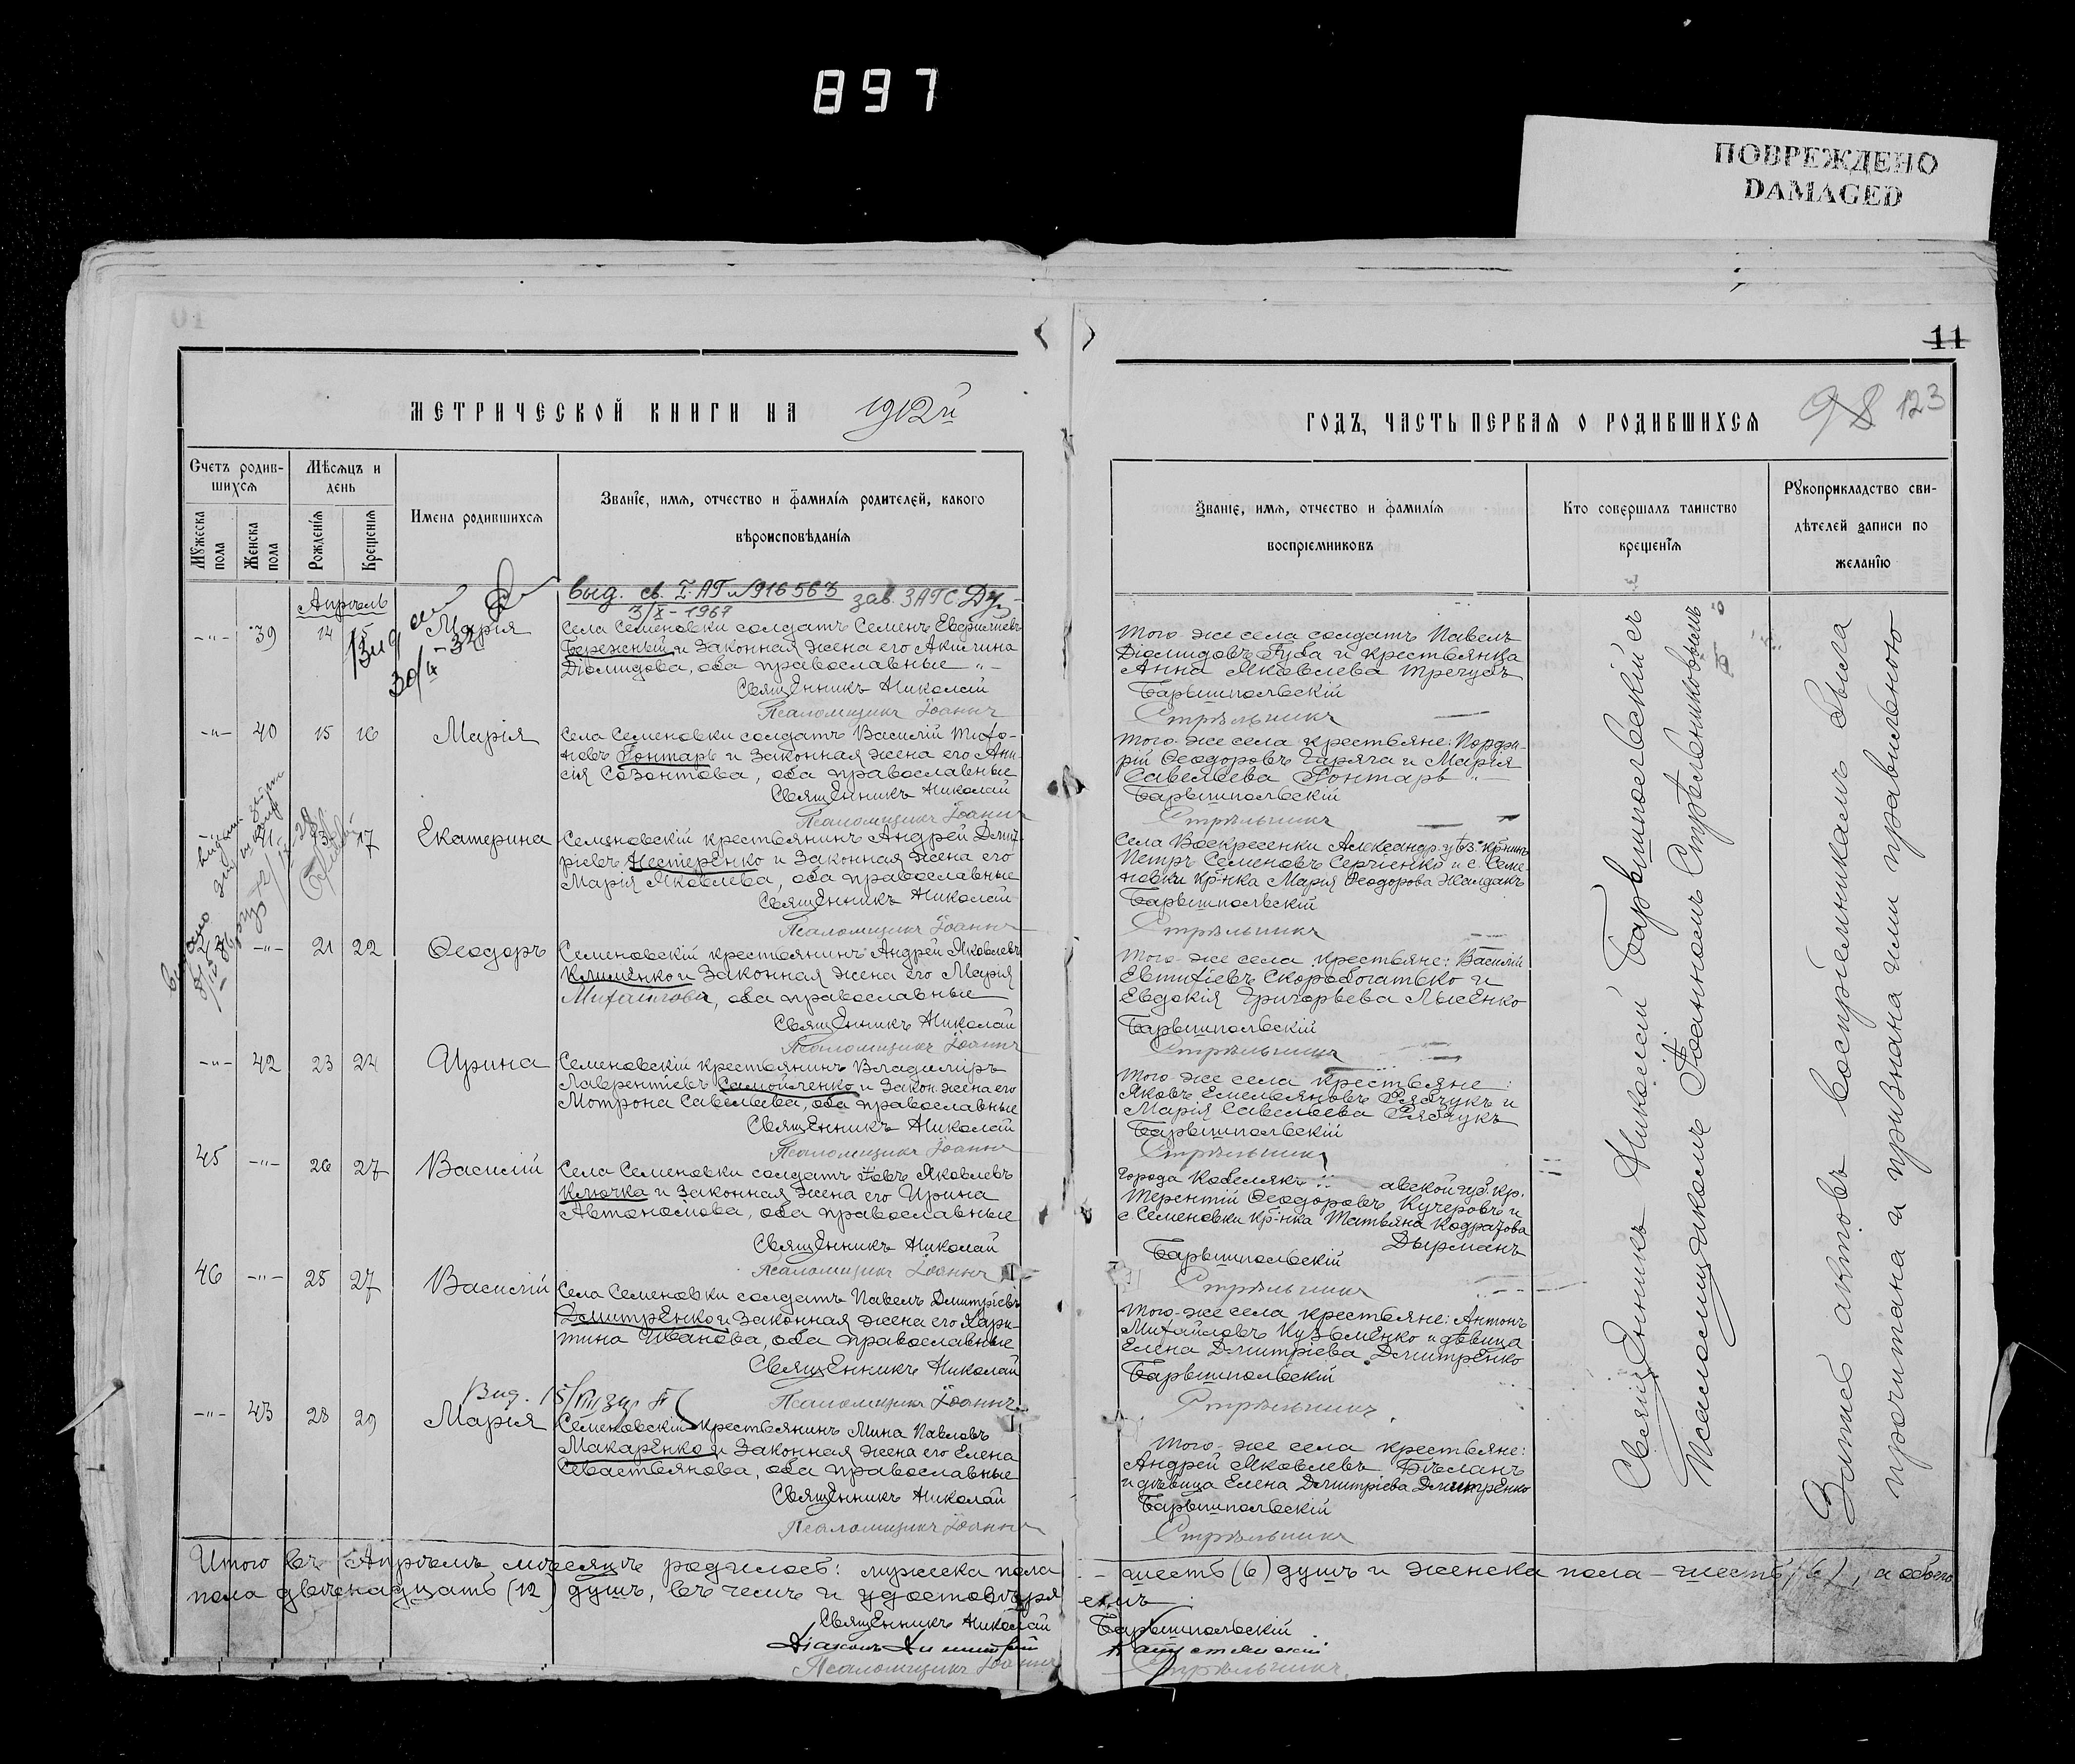 897
ПОВРЕЖДЕНО
DAMAGED
11
98 123
МЕТРИЧЕСКОЙ КНИГИ НА 1912й
ГОДЪ, ЧАСТЬ ПЕРВАЯ О РОДИВШИХСЯ
Счетъ родив-
шихся
Мужеска пола
Женска пола
Мѣсяцъ и
день
Рожденія
Крещенія
Имена родившихся
Званіе, имя, отчество и фамилія родителей, какого
вѣроисповѣданія
Званіе, имя, отчество и фамилія
воспріемниковъ
Кто совершалъ таинство
крещенія
Рукоприкладство сви-
дѣтелей записи по
желанію
выд. св. I-АГ №916563 зав. ЗАГС
3/X-1967
Апрѣль
-"- 39 14 15 Марія
Села Семеновки солдатъ Семенъ Евфиміевъ
Бережный и законная жена его Акилина
Діомидова, оба православные
Священникъ Николай
Псаломщикъ Іоаннъ
Того-же села солдатъ Павелъ
Діомидовъ Губа и крестьянка
Анна Яковлева Трегубъ
Барышпольскій
Стрѣльникъ
-"- 40 15 16 Марія
Села Семеновки солдатъ Василій Тихо-
новъ Гонтарь и законная жена его Ани-
сія Созонтова, оба православные
Священникъ Николай
Псаломщикъ Іоаннъ
Того-же села крестьяне: Порфи-
рій Ѳеодоровъ Гаряга и Марія
Савельева Гонтарь
Барышпольскій
Стрѣльникъ
17 Екатерина
Семеновскій крестьянинъ Андрей Дмит-
ріевъ Нестеренко и законная жена его
Марія Яковлева, оба православные
Священникъ Николай
Псаломщикъ Іоаннъ
Села Воскресенки Александр. уѣз. кр-нинъ
Петръ Семеновъ Сергіенко и с. Семе-
новки кр-нка Марія Ѳеодорова Жалдакъ
Барышпольскій
Стрѣльникъ
-"- 21 22 Ѳеодоръ
Семеновскій крестьянинъ Андрей Яковлевъ
Клименко и законная жена его Марія
Михайлова, оба православные
Священникъ Николай
Псаломщикъ Іоаннъ
Того-же села крестьяне: Василій
Евтихіевъ Скоробогатько и
Евдокія Григорьева Лысенко
Барышпольскій
Стрѣльникъ
-"- 42 23 24 Ирина
Семеновскій крестьянинъ Владиміръ
Лаврентіевъ Самойленко и закон. жена его
Мотрона Савельева, оба православные
Священникъ Николай
Псаломщикъ Іоаннъ
Того-же села крестьяне:
Яковъ Емельяновъ Рябчукъ и
Марія Савельева Рябчукъ
Барышпольскій
Стрѣльникъ
45 -"- 26 27 Василій
Села Семеновки солдатъ Іовъ Яковлевъ
Клочка и законная жена его Ирина
Автономова, оба православные
Священникъ Николай
Псаломщикъ Іоаннъ
Города Кобелякъ авской губ. кр.
Терентій Ѳеодоровъ Кучеровъ и
с. Семеновки кр-нка Татьяна Кодратова
Дырманъ
Барышпольскій
Стрѣльникъ
46 -"- 25 27 Василій
Села Семеновки солдатъ Павелъ Дмитріевъ
Дмитренко и законная жена его Хари-
тина Иванова, оба православные
Священникъ Николай
Псаломщикъ Іоаннъ
Того-же села крестьяне: Антонъ
Михайловъ Кузьменко и дѣвица
Елена Дмитріева Дмитренко
Барышпольскій
Стрѣльникъ
Вид. 15/VIII 34
-"- 43 28 29 Марія
Семеновскій крестьянинъ Мина Павловъ
Макаренко и законная жена его Елена
Севастьянова, оба православные
Священникъ Николай
Псаломщикъ Іоаннъ
Того-же села крестьяне:
Андрей Яковлевъ Бѣланъ
и дѣвица Елена Дмитріева Дмитренко
Барышпольскій
Стрѣльникъ
Священникъ Николай Барышпольскій съ
Псаломщикомъ Іоанномъ Стрѣльниковымъ
Запись актовъ воспріемникамъ была
прочитана и признана ими правильною
Итого въ Апрѣлѣ мѣсяцѣ родилось: мужска пола - шесть (6) душъ и женска пола - шесть (6), а обоего
пола двѣнадцать (12) душъ, въ чемъ и удостовѣряемъ:
Священникъ Николай Барышпольскій
Діаконъ Димитрій
Псаломщикъ Іоаннъ Стрѣльникъ